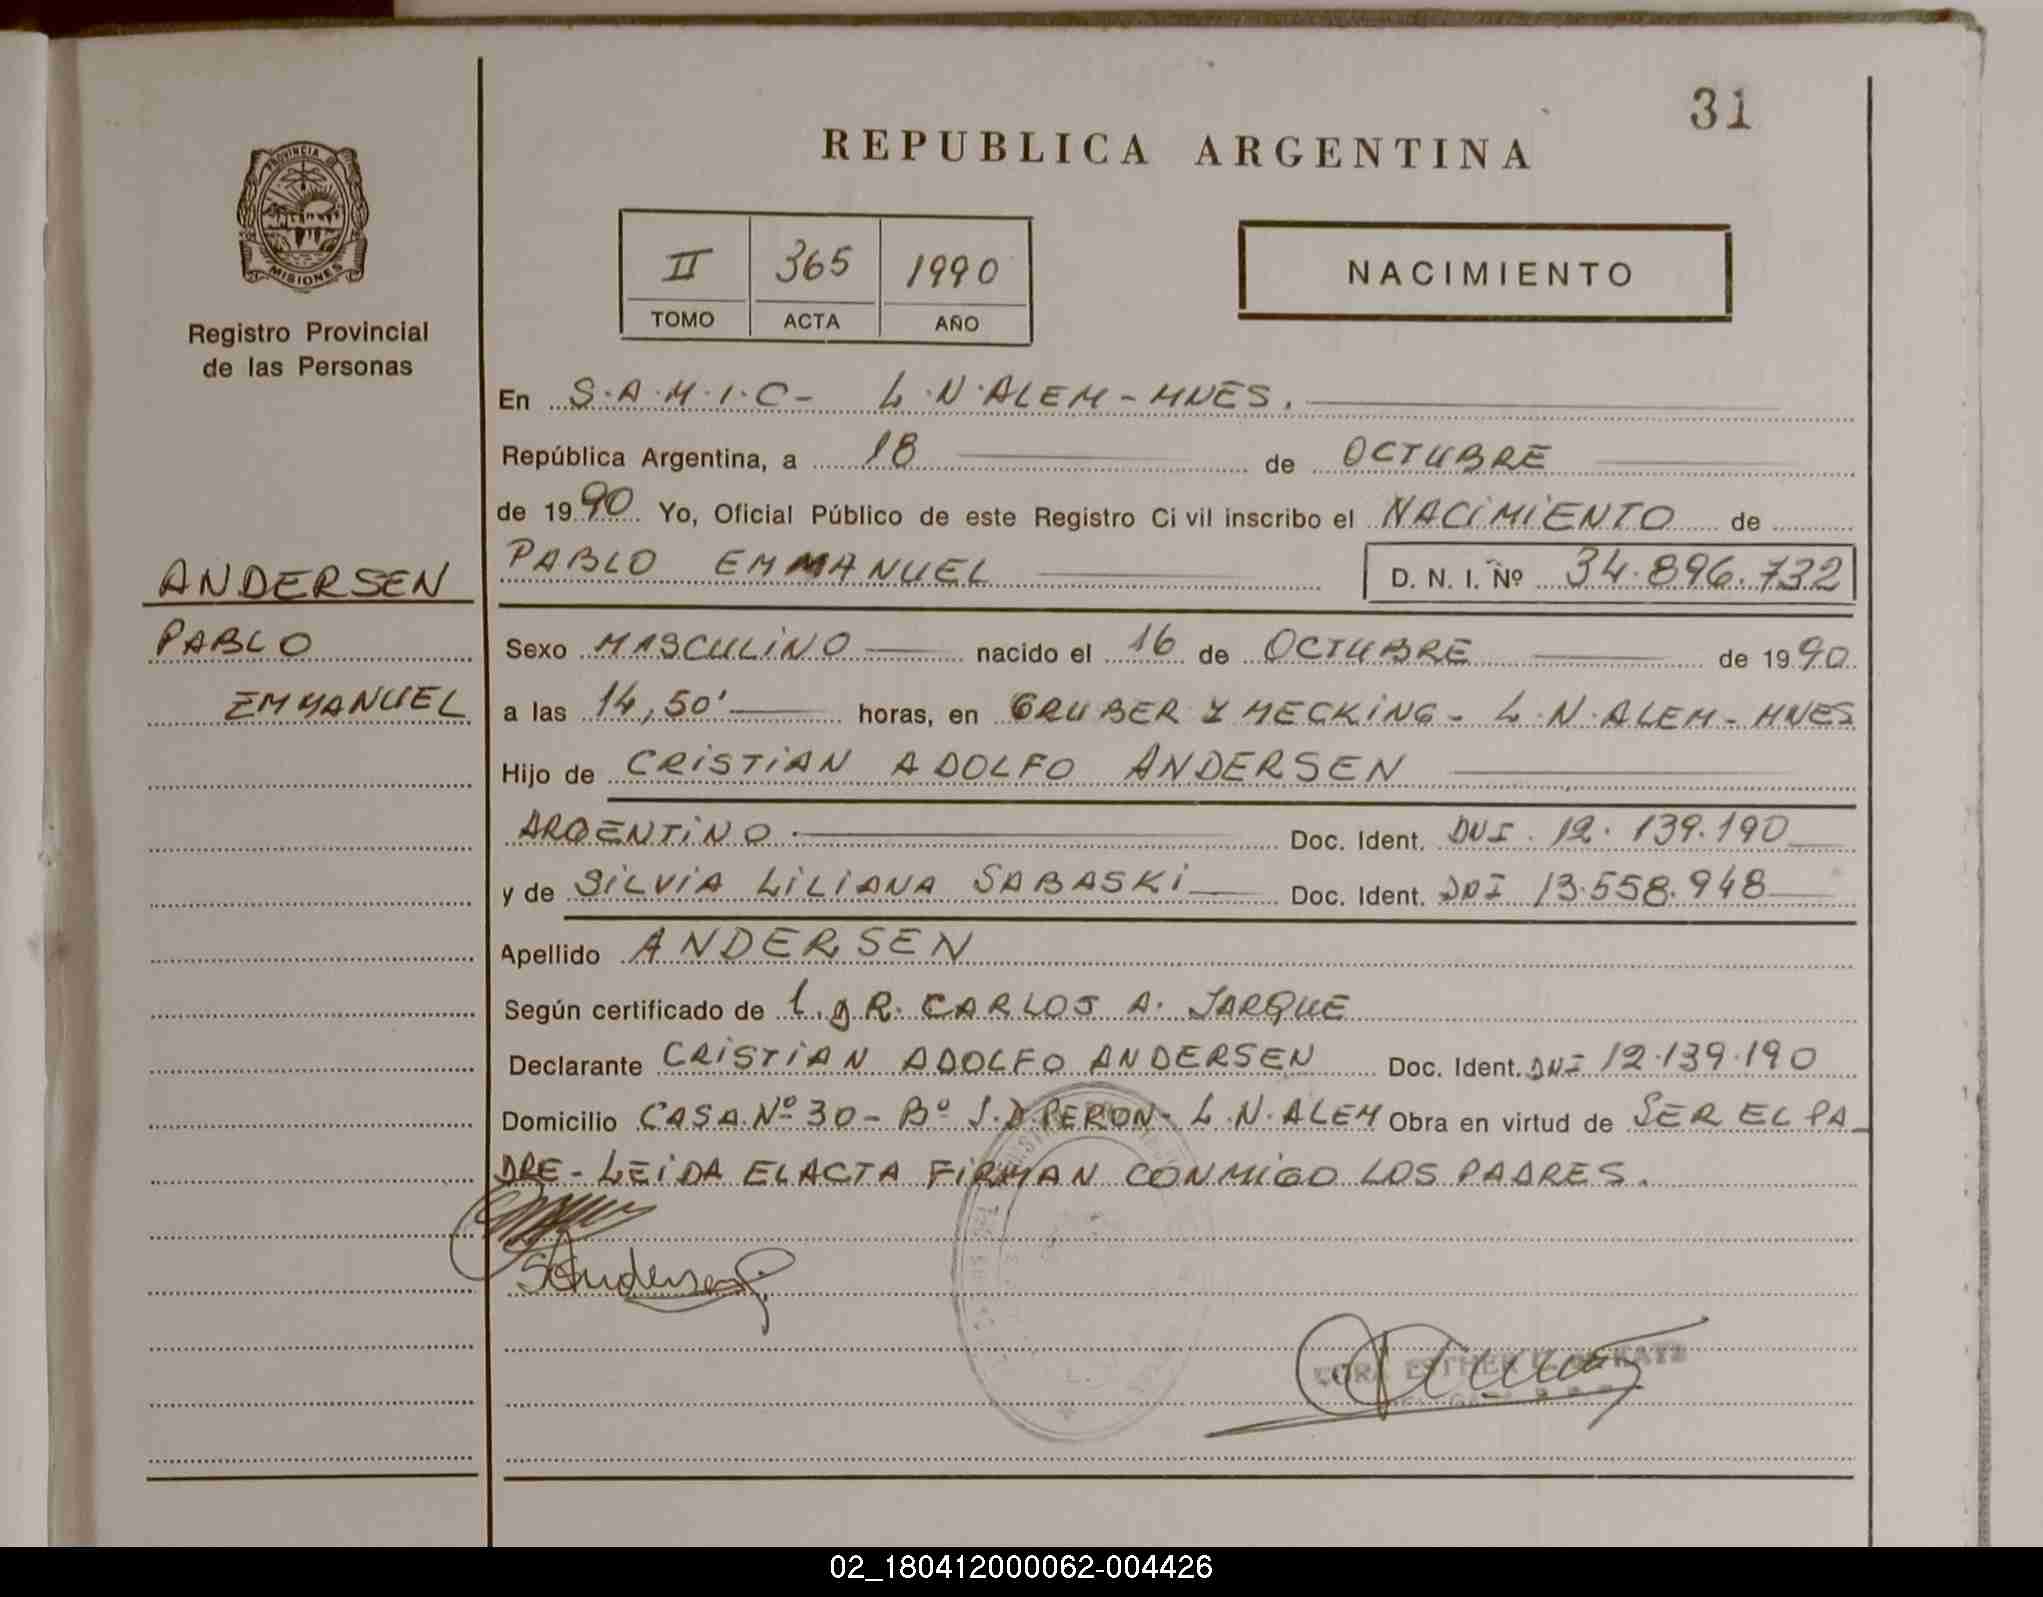 31
REPUBLICA ARGENTINA
PROVINCIA DE
MISIONES
Registro Provincial
de las Personas
II 365 1990
TOMO ACTA AÑO
NACIMIENTO
En S.A.M.I.C- L.N.ALEM-MNES.
República Argentina, a 18 de OCTUBRE
de 1990 Yo, Oficial Público de este Registro Civil inscribo el NACIMIENTO de
ANDERSEN
PABLO EMMANUEL D. N. I. Nº 34.896.732
PABLO
Sexo MASCULINO nacido el 16 de OCTUBRE de 1990
EMMANUEL
a las 14,50' horas, en GRUBER Y MECKING- L.N.ALEM-MNES
Hijo de CRISTIAN ADOLFO ANDERSEN
ARGENTINO. Doc. Ident. DNI. 12.139.190
y de SILVIA LILIANA SABASKI Doc. Ident. DNI 13.558.948
Apellido ANDERSEN
Según certificado de CARLOS A. JARQUE
Declarante CRISTIAN ADOLFO ANDERSEN Doc. Ident. DNI 12.139.190
Domicilio CASA Nº 30- Bº J.D.PERON- L.N.ALEM Obra en virtud de SER EL PA_
DRE- LEIDA EL ACTA FIRMAN CONMIGO LOS PADRES.
SAndersen
ESTHER
02_180412000062-004426